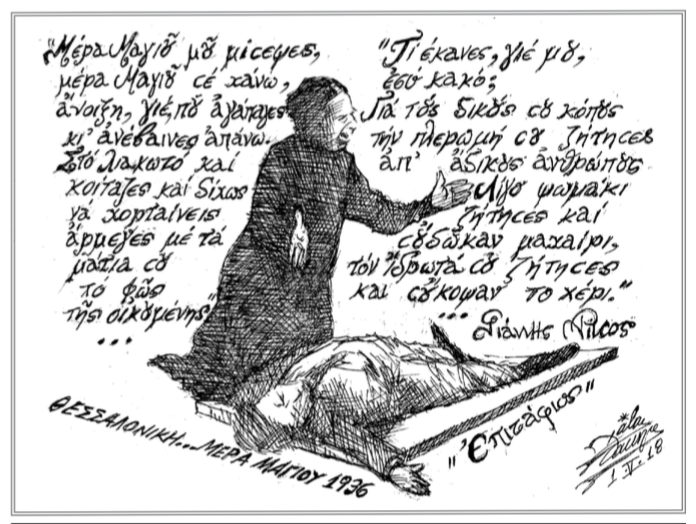 "Μέρα Μαγιοῦ μοῦ μίσεψες,
μέρα Μαγιοῦ σέ χάνω,
ἄνοιξη, γιέ, πού ἀγάπαγες
κι' ἀνέβαινες ἀπάνω.
Στό λιακωτό καί
κοίταζες καί δίχως
νά χορταίνεις
ἄρμεγες μέ τά
μάτια σου
τό φῶς
τῆς οἰκουμένης"
...
"Τί έκανες, γιέ μου,
ἐσύ κακό;
Γιά τούς δικούς σου κόπους
τήν πλερωμή σου ζήτησες
ἀπ' ἀδίκους ἀνθρώπους
Λίγο ψωμάκι
ζήτησες καί
σοῦδωκαν μαχαίρι,
τόν ἱδρωτά σου ζήτησες
καί σοῦκοψαν το χέρι."
...
Γιάννης Ρίτσος
"Ἐπιτάφιος"
ΘΕΣΣΑΛΟΝΙΚΗ... ΜΕΡΑ ΜΑΓΙΟΥ 1936
1.V.18